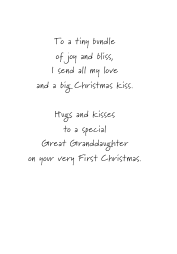 To a tiny bundle
of joy and bliss,
I send all my love
and a big Christmas kiss.
Hugs and kisses
to a special
Great Granddaughter
on your very First Christmas.